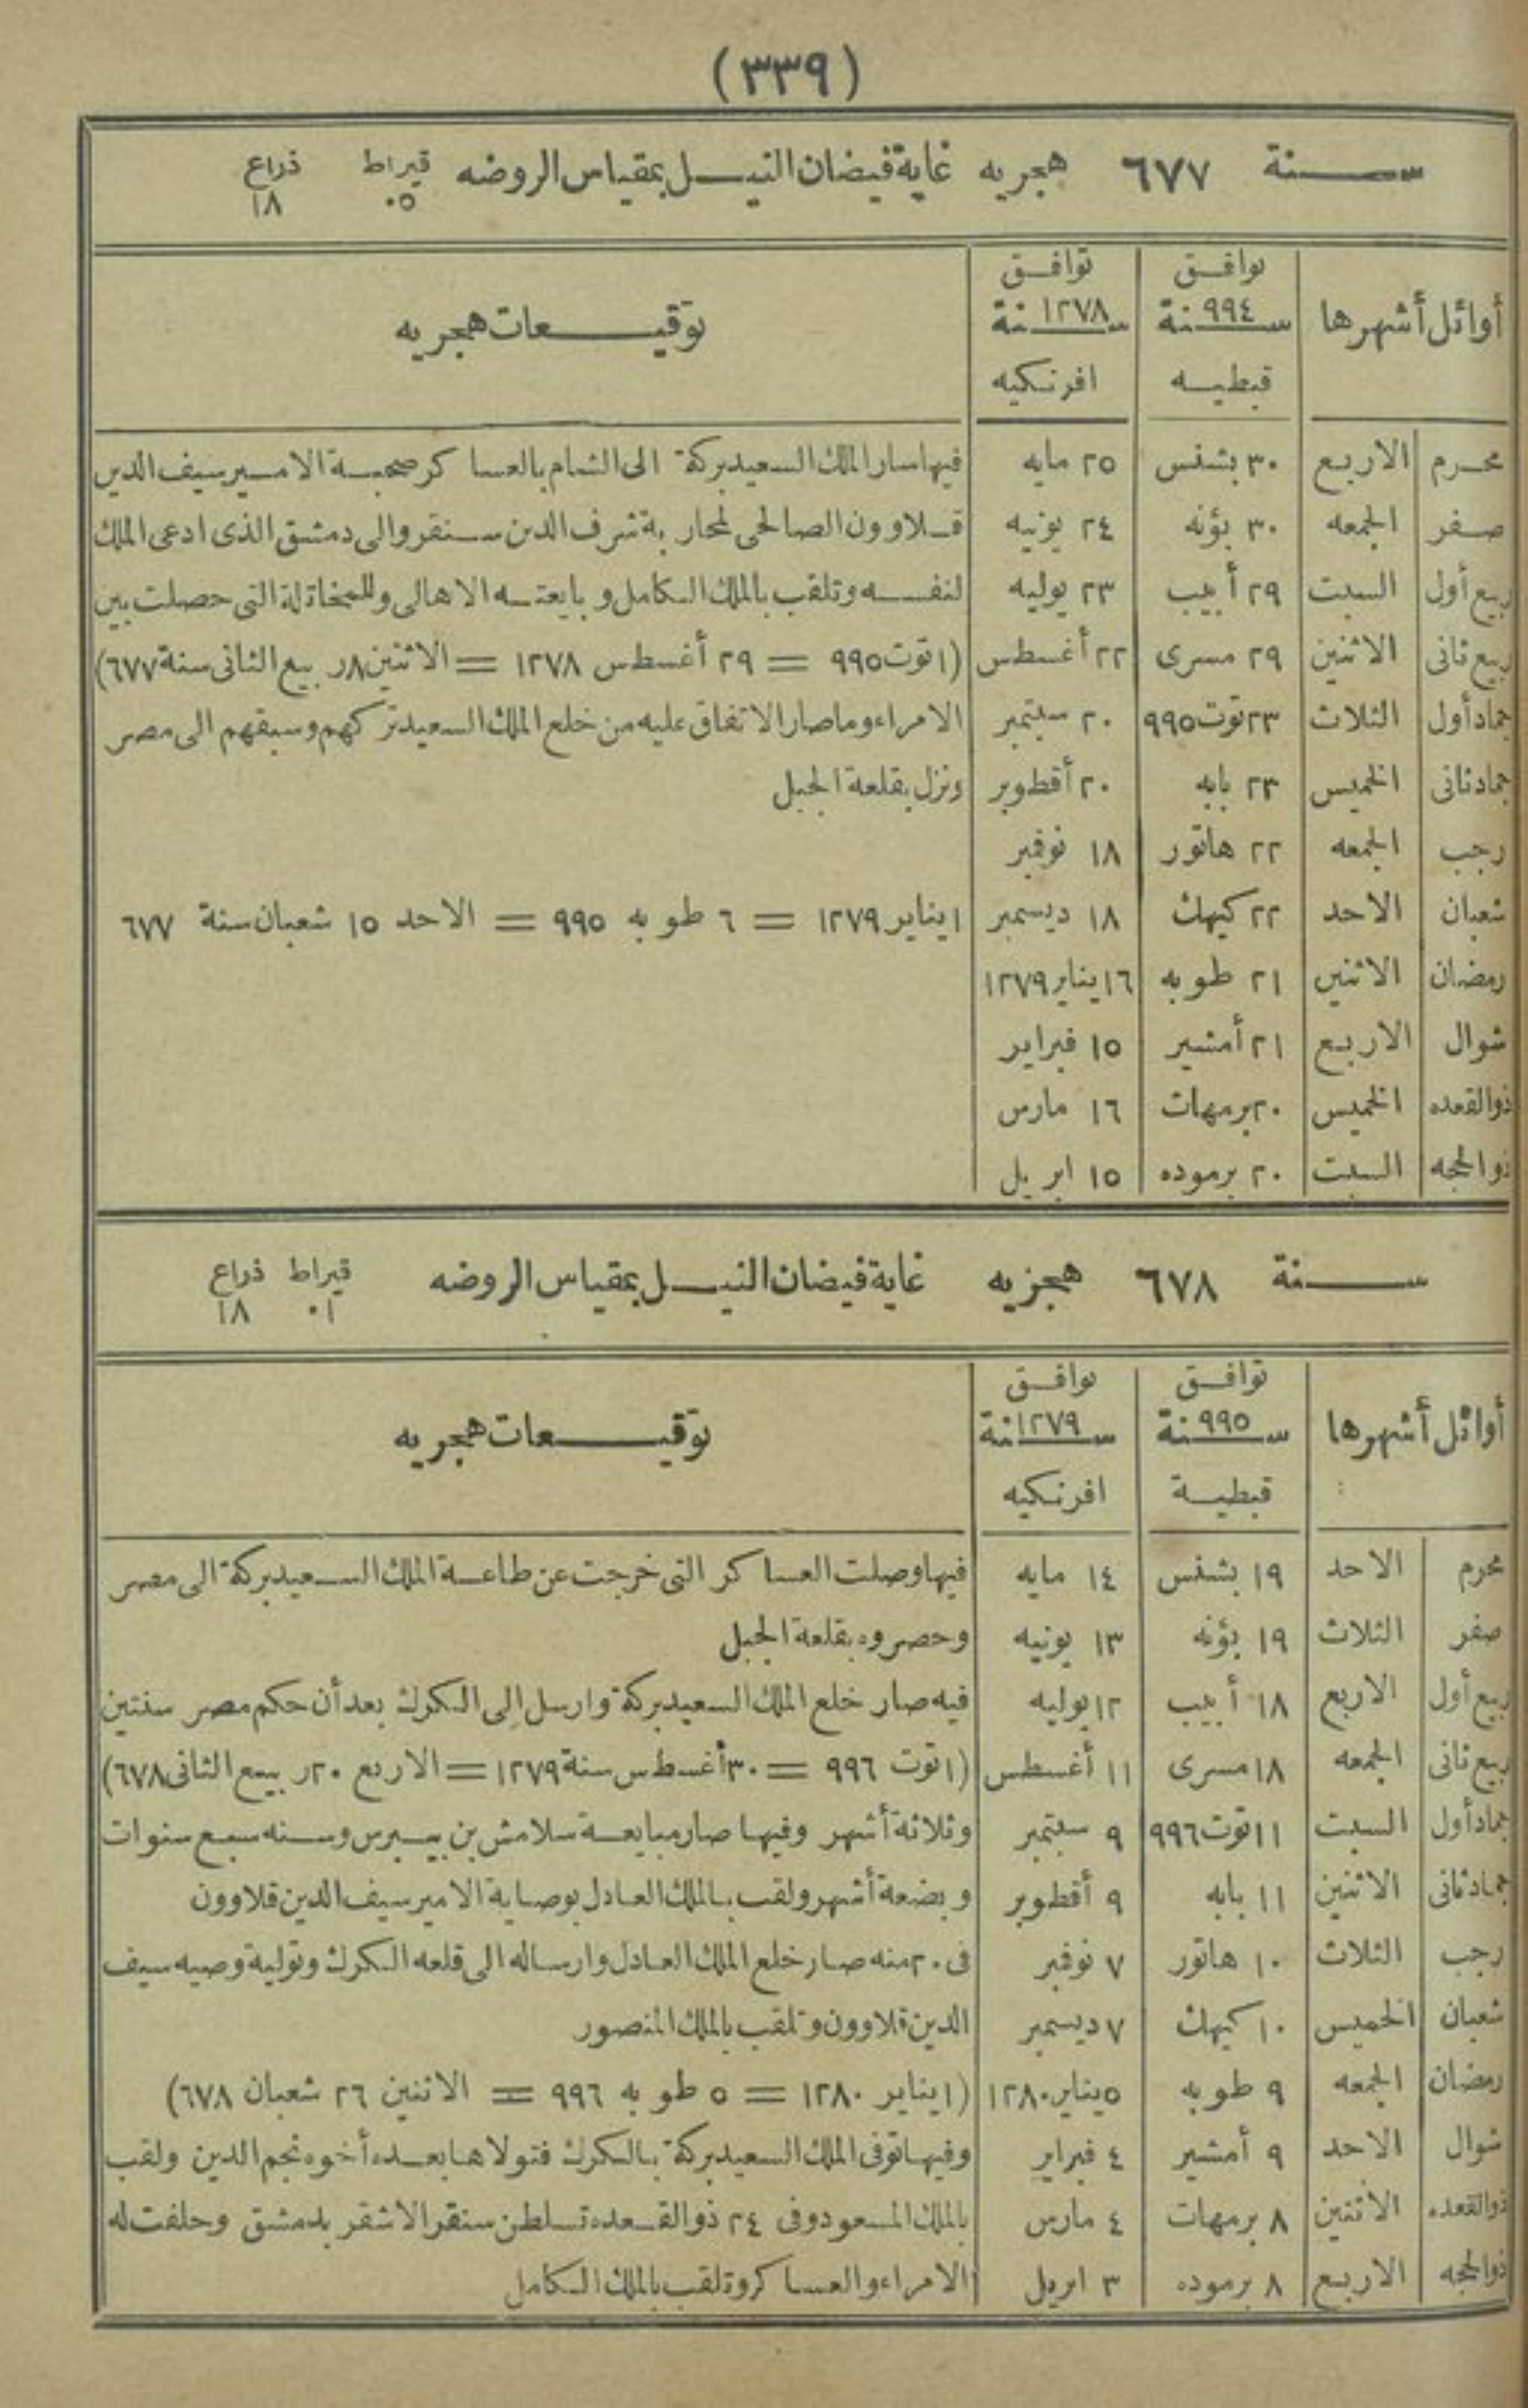 (٣٣٩)
سنة ٦٧٧ هجريه غاية فيضان النيل بمقياس الروضه قيراط ذراع
٠٥ ١٨
أوائل أشهرها توافق توافق توقيعات هجريه
سنة ٩٩٤ سنة ١٢٧٨
قبطيه افرنكيه
محرم الاربع ٣٠ بشنس ٢٥ مايه فيها سار الملك السعيد بركة الى الشام بالعساكر صحبة الامير سيف الدين
صفر الجمعه ٣٠ بؤنه ٢٤ يونيه قلاوون الصالحى لمحاربة شرف الدين سنقر والى دمشق الذى ادعى الملك
ربيع أول السبت ٢٩ أبيب ٢٣ يوليه لنفسه وتلقب بالملك الكامل وبايعته الاهالى وللمخاتلة التى حصلت بين
ربيع ثانى الاثنين ٢٩ مسرى ٢٢ أغسطس (١ توت ٩٩٥ = ٢٩ أغسطس ١٢٧٨ = الاثنين ٨ ربيع الثانى سنة ٦٧٧)
جماد أول الثلاث ٢٣ توت ٩٩٥ ٢٠ سبتمبر الامراء وما صار الاتفاق عليه من خلع الملك السعيد تركهم وسبقهم الى مصر
جماد ثانى الخميس ٢٣ بابه ٢٠ أقطوبر ونزل بقلعة الجبل
رجب الجمعه ٢٢ هاتور ١٨ نوفمبر
شعبان الاحد ٢٢ كيهك ١٨ ديسمبر ١ يناير ١٢٧٩ = ٦ طوبه ٩٩٥ = الاحد ١٥ شعبان سنة ٦٧٧
رمضان الاثنين ٢١ طوبه ١٦ يناير ١٢٧٩
شوال الاربع ٢١ أمشير ١٥ فبراير
ذوالقعده الخميس ٢٠ برمهات ١٦ مارس
ذوالحجه السبت ٢٠ برموده ١٥ ابريل
سنة ٦٧٨ هجزيه غاية فيضان النيل بمقياس الروضه قيراط ذراع
٠١ ١٨
أوائل أشهرها توافق توافق توقيعات هجريه
سنة ٩٩٥ سنة ١٢٧٩
قبطية افرنكيه
محرم الاحد ١٩ بشنس ١٤ مايه فيها وصلت العساكر التى خرجت عن طاعة الملك السعيد بركة الى مصر
صفر الثلاث ١٩ بؤنه ١٣ يونيه وحصروه بقلعة الجبل
ربيع أول الاربع ١٨ أبيب ١٢ يوليه فيه صار خلع الملك السعيد بركة وارسل إلى الكرك بعد أن حكم مصر سنتين
ربيع ثانى الجمعه ١٨ مسرى ١١ أغسطس (١ توت ٩٩٦ = ٣٠ أغسطس سنة ١٢٧٩ = الاربع ٢٠ ربيع الثانى ٦٧٨)
جماد أول السبت ١١ توت ٩٩٦ ٩ سبتمبر وثلاثة أشهر وفيها صار مبايعة سلامش بن بيبرس وسنه سبع سنوات
جماد ثانى الاثنين ١١ بابه ٩ أقطوبر وبضعة أشهر ولقب بالملك العادل بوصاية الامير سيف الدين قلاوون
رجب الثلاث ١٠ هاتور ٧ نوفمبر فى ٢٠ منه صار خلع الملك العادل وارساله الى قلعه الكرك وتولية وصيه سيف
شعبان الخميس ١٠ كيهك ٧ ديسمبر الدين قلاوون وتلقب بالملك المنصور
رمضان الجمعه ٩ طوبه ٥ يناير ١٢٨٠ (١ يناير ١٢٨٠ = ٥ طوبه ٩٩٦ = الاثنين ٢٦ شعبان ٦٧٨)
شوال الاحد ٩ أمشير ٤ فبراير وفيها توفى الملك السعيد بركة بالكرك فتولاها بعده أخوه نجم الدين ولقب
ذوالقعده الاثنين ٨ برمهات ٤ مارس بالملك المسعود وفى ٢٤ ذوالقعده تسلطن سنقر الاشقر بدمشق وحلفت له
ذوالحجه الاربع ٨ برموده ٣ ابريل الامراء والعساكر وتلقب بالملك الكامل